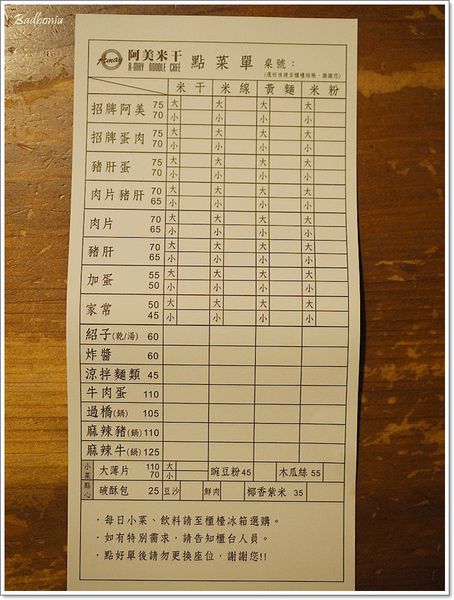 Badboniu
Amay 阿美米干 點菜單 桌號：
A-MAY NOODLE CAFÉ (選好後請至櫃檯結帳，謝謝您)
米干 米線 黃麵 米粉
招牌阿美 75 大 大 大 大
70 小 小 小 小
招牌蛋肉 75 大 大 大 大
70 小 小 小 小
豬肝蛋 75 大 大 大 大
70 小 小 小 小
肉片豬肝 70 大 大 大 大
65 小 小 小 小
肉片 70 大 大 大 大
65 小 小 小 小
豬肝 70 大 大 大 大
65 小 小 小 小
加蛋 55 大 大 大 大
50 小 小 小 小
家常 50 大 大 大 大
45 小 小 小 小
紹子(乾/湯) 60
炸醬 60
涼拌麵類 45
牛肉蛋 110
過橋(鍋) 105
麻辣豬(鍋) 110
麻辣牛(鍋) 125
小菜點心 大薄片 110 大 豌豆粉 45 木瓜絲 55
70 小
破酥包 25 豆沙 鮮肉 椰香紫米 35
·每日小菜、飲料請至櫃檯冰箱選購。
·如有特別需求，請告知櫃台人員。
·點好單後請勿更換座位，謝謝您!!